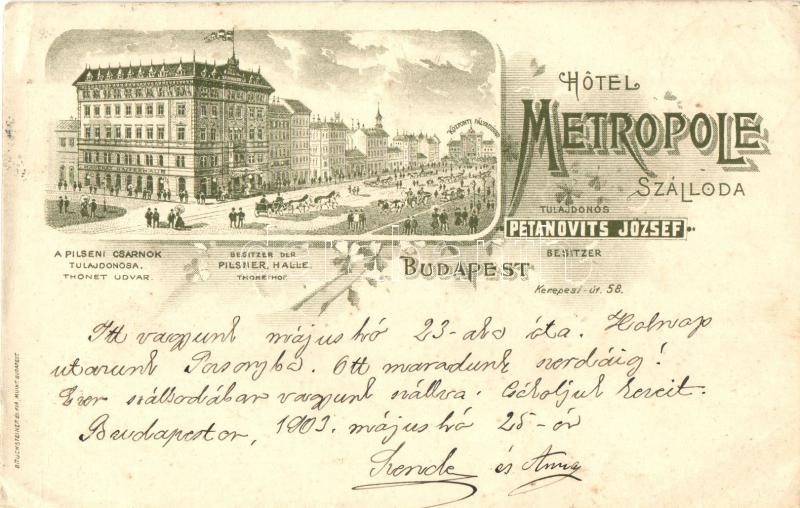 KÖZPONTI PÁLYAUDVAR
HÔTEL
METROPOLE
SZÁLLODA
TULAJDONOS
PETANOVITS JÓZSEF
BESITZER
BUDAPEST
Kerepesi-út. 58.
A PILSENI CSARNOK
TULAJDONOSA.
THONET UDVAR.
BESITZER DER
PILSNER HALLE.
THONETHOF.
Itt vagyunk május hó 23-ika óta. Holnap
utazunk Pozsonyba. Ott maradunk szerdáig!
Ezen szállodában vagyunk szállva. Csókoljuk kezeit.
Budapesten, 1903. május hó 25-én
Szende és